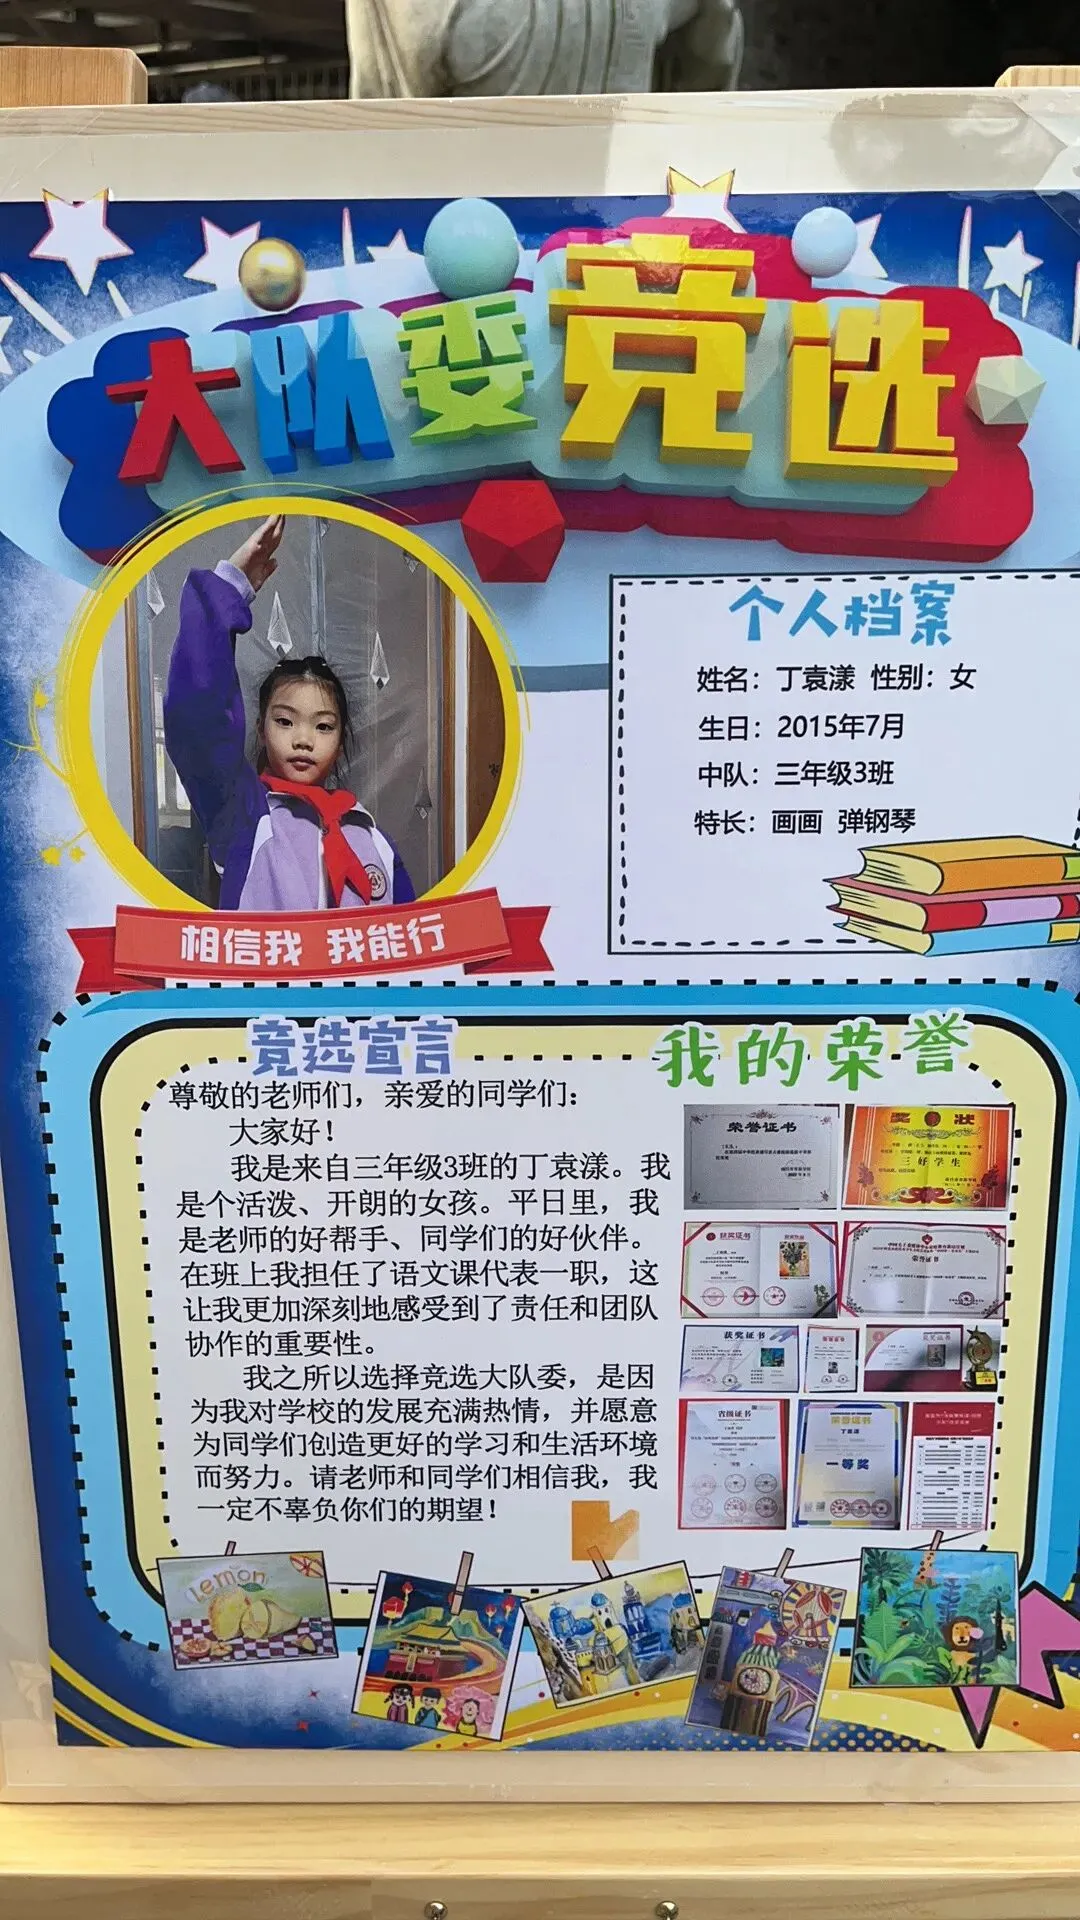 大队委竞选
个人档案
姓名：丁袁漾 性别：女
生日：2015年7月
中队：三年级3班
特长：画画 弹钢琴
相信我 我能行
竞选宣言
尊敬的老师们，亲爱的同学们：
大家好！
我是来自三年级3班的丁袁漾。我
是个活泼、开朗的女孩。平日里，我
是老师的好帮手、同学们的好伙伴。
在班上我担任了语文课代表一职，这
让我更加深刻地感受到了责任和团队
协作的重要性。
我之所以选择竞选大队委，是因
为我对学校的发展充满热情，并愿意
为同学们创造更好的学习和生活环境
而努力。请老师和同学们相信我，我
一定不辜负你们的期望！
我的荣誉
荣誉证书
奖状
三好学生
获奖证书
获奖证书
获奖证书
省级证书
荣誉证书
丁袁漾
一等奖
lemon